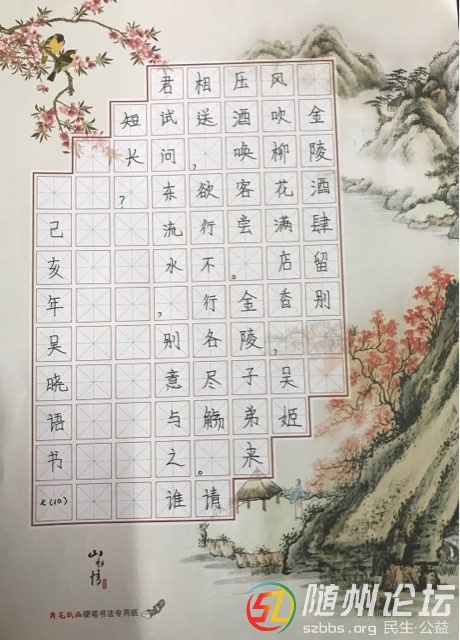 金陵酒肆留别
风吹柳花满店香，吴姬
压酒唤客尝。金陵子弟来
相送，欲行不行各尽觞。请
君试问东流水，别意与之谁
短长？
己亥年吴晓语书七(10)
山水情
硬笔书法专用纸
随州论坛
szbbs.org 民生·公益